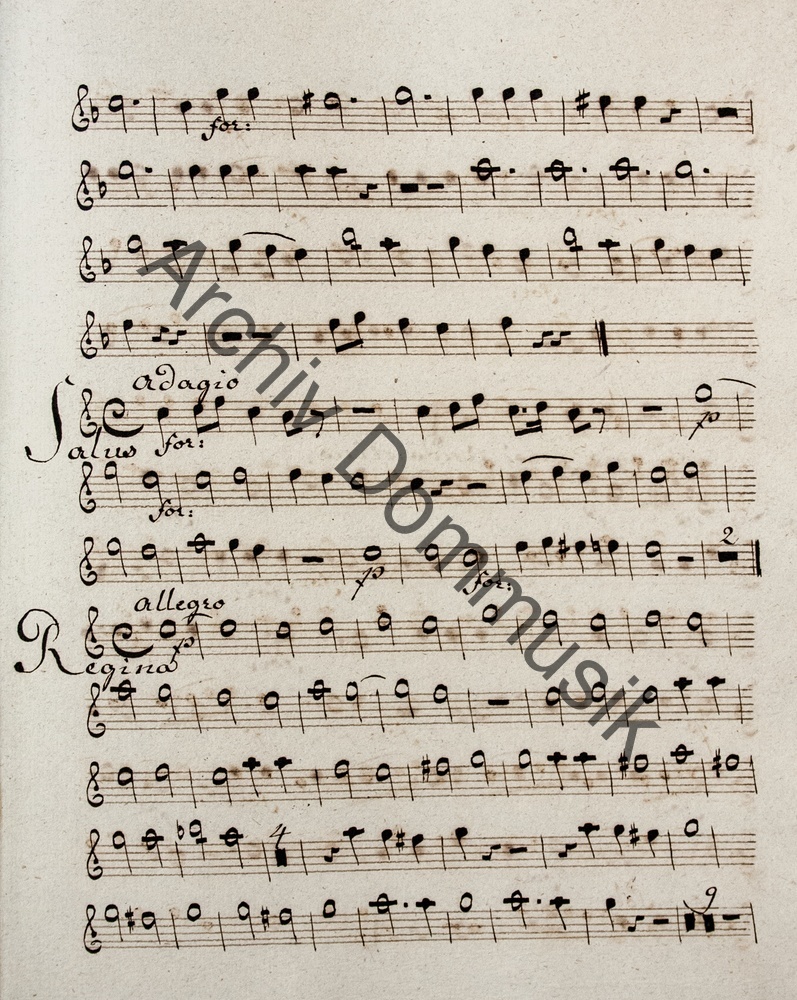 for:
adagio
Salus for:
p
for:
2
p
for:
allegro
Regina p
4
9
Archiv Dommusik